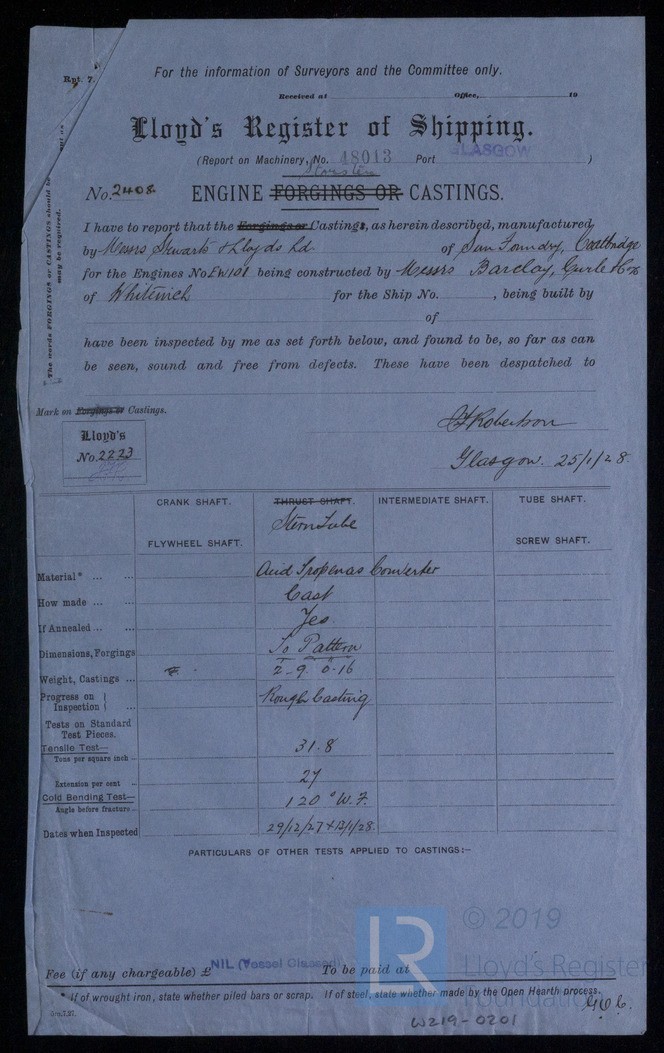 Rpt. 7.
For the information of Surveyors and the Committee only.
Received at Office, 19
Lloyd's Register of Shipping.
(Report on Machinery, No. 48013 Port GLASGOW )
No. 2408. ENGINE FORGINGS OR CASTINGS.
The words FORGINGS or CASTINGS should be
may be required.
I have to report that the Forgings or Castings, as herein described, manufactured
by Messrs Stewarts & Lloyds Ld of Sun Foundry, Coatbridge
for the Engines No. EW101 being constructed by Messrs Barclay, Curle & Co
of Whiteinch for the Ship No. , being built by
of
have been inspected by me as set forth below, and found to be, so far as can
be seen, sound and free from defects. These have been despatched to
Mark on Forgings or Castings.
Lloyd's
No. 2223
Robertson
Glasgow. 25/1/28.
CRANK SHAFT. THRUST SHAFT. INTERMEDIATE SHAFT. TUBE SHAFT.
Stern Tube
FLYWHEEL SHAFT. SCREW SHAFT.
Material* ... ... Acid Tropenas Converter
How made ... ... Cast
If Annealed ... ... Yes
Dimensions, Forgings To Pattern
Weight, Castings ... T 2-9-0-16
Progress on Inspection ... Rough Casting
Tests on Standard
Test Pieces.
Tensile Test—
Tons per square inch ... 31.8
Extension per cent ... 27
Cold Bending Test— 120° W.F.
Angle before fracture ...
Dates when Inspected 29/12/27 & 13/1/28.
PARTICULARS OF OTHER TESTS APPLIED TO CASTINGS:—
© 2019
LR
Lloyd's Register
Foundation
Fee (if any chargeable) £ NIL (Vessel Classed) To be paid at
* If of wrought iron, state whether piled bars or scrap. If of steel, state whether made by the Open Hearth process.
5m.7.27.
W219-0201